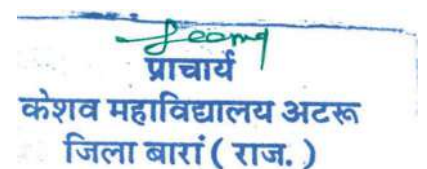 प्राचार्य
केशव महाविद्यालय अटरू
जिला बारां ( राज. )